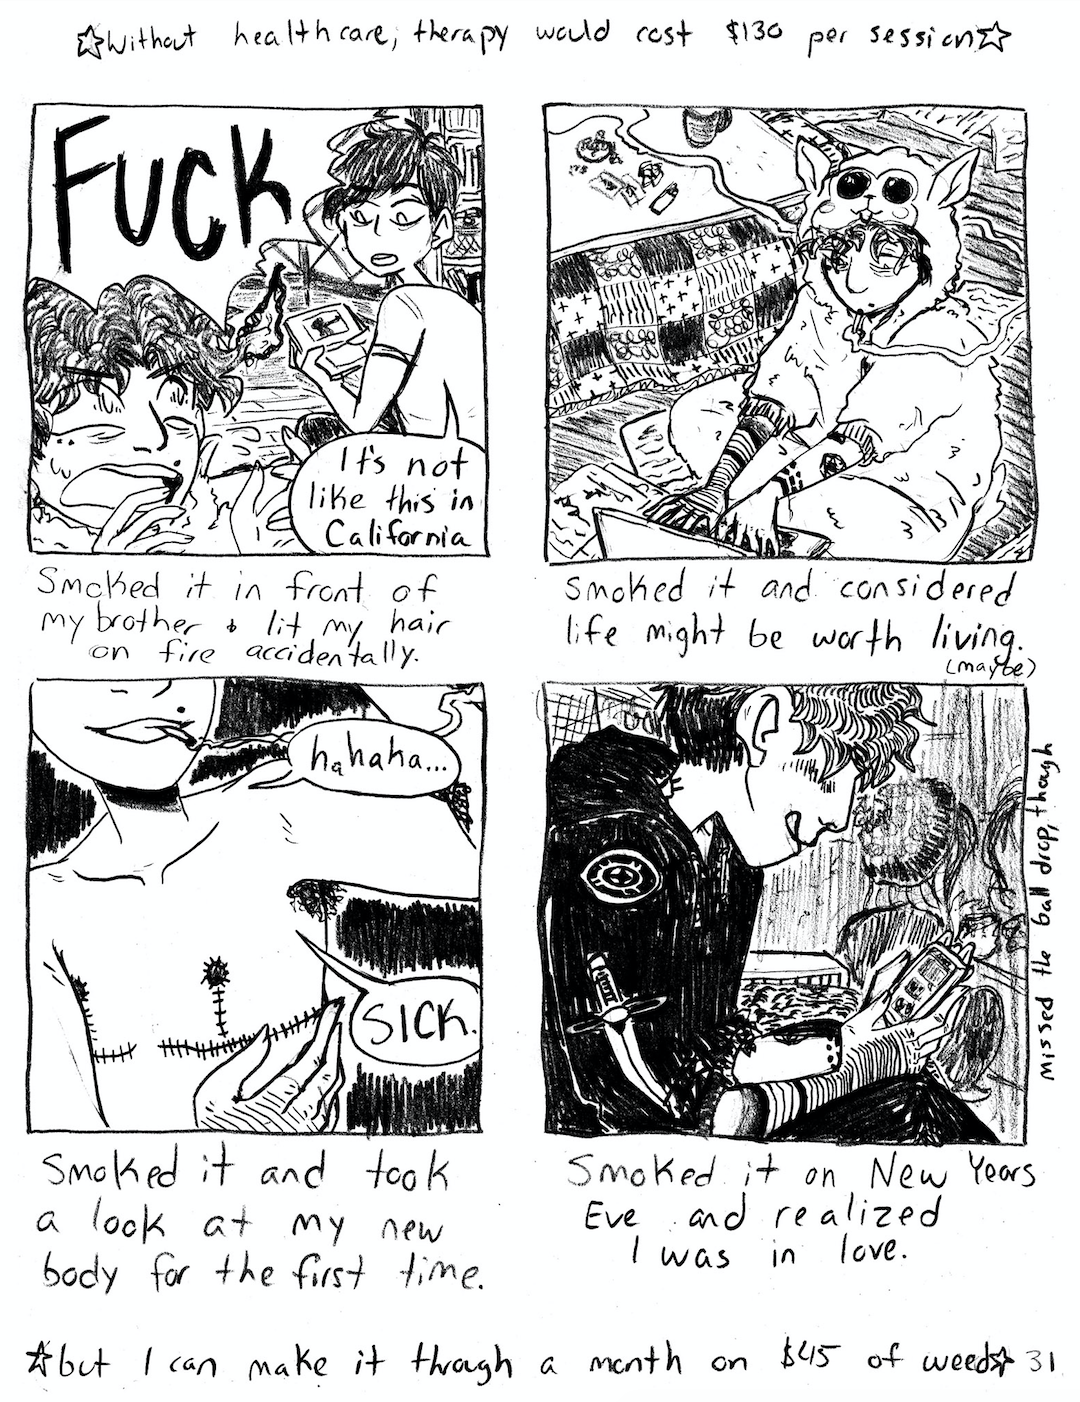 ☆Without healthcare, therapy would cost $130 per session☆
FUCK
It's not
like this in
California
Smoked it in front of
my brother & lit my hair
on fire accidentally.
Smoked it and considered
life might be worth living.
(maybe)
hahaha...
SICK.
Smoked it and took
a look at my new
body for the first time.
missed the ball drop, though
Smoked it on New Years
Eve and realized
I was in love.
☆but I can make it through a month on $45 of weed☆ 31